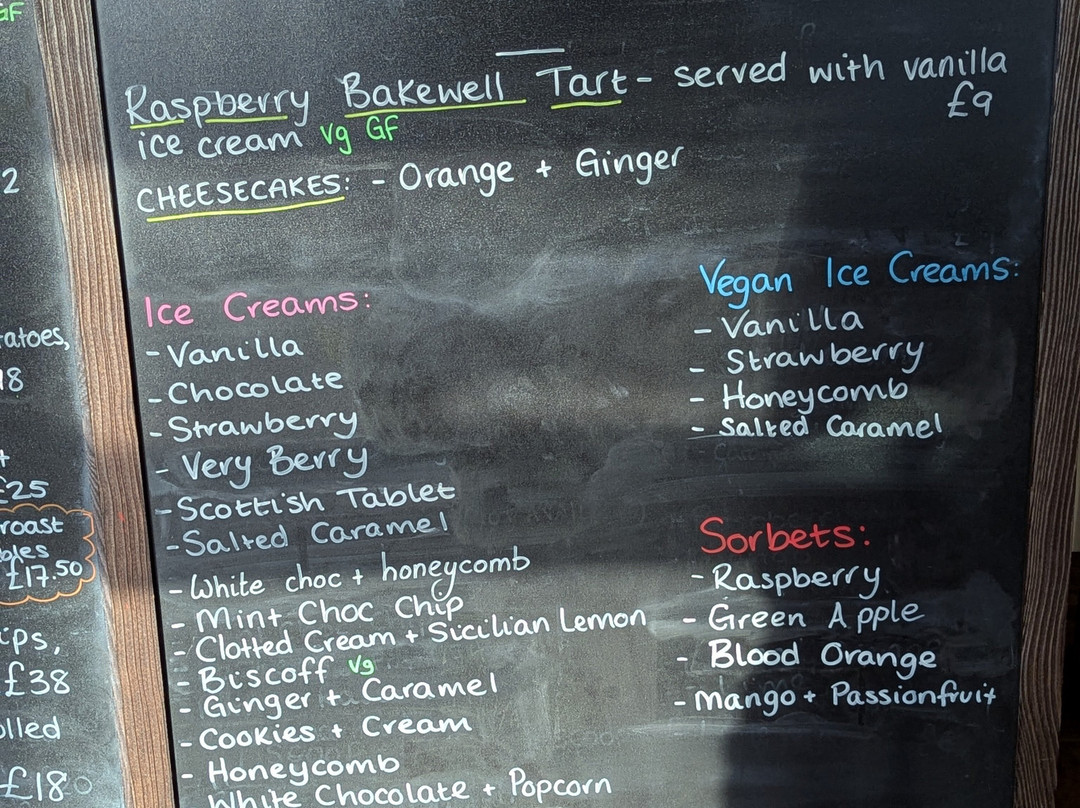 GF
2
atoes,
18
+
£25
roast
bles
£17.50
ips,
£38
olled
£180
Raspberry Bakewell Tart - served with vanilla
£9
ice cream vg GF
CHEESECAKES: - Orange + Ginger
Ice Creams:
- Vanilla
- Chocolate
- Strawberry
- Very Berry
- Scottish Tablet
- Salted Caramel
- White choc + honeycomb
- Mint Choc Chip
- Clotted Cream + Sicilian Lemon
- Biscoff vg
- Ginger + Caramel
- Cookies + Cream
- Honeycomb
White Chocolate + Popcorn
Vegan Ice Creams:
- Vanilla
- Strawberry
- Honeycomb
- Salted Caramel
Sorbets:
- Raspberry
- Green Apple
- Blood Orange
- Mango + Passionfruit